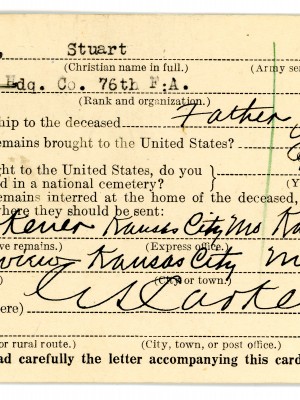 Stuart
(Christian name in full.) (Army se
Hdq. Co. 76th F.A.
(Rand and organization.)
ship to the deceased Father
emains brought to the United States?
ght to the United States, do you
d in a national cemetery? } (Y
emains interred at the home of the deceased,
where they should be sent:
Kansas City Mo Ka
ve remains.) (Express office.)
view Kansas City M
) (City or town.)
ere)
or rural route.) (City, town, or post office.)
ad carefully the letter accompanying this card